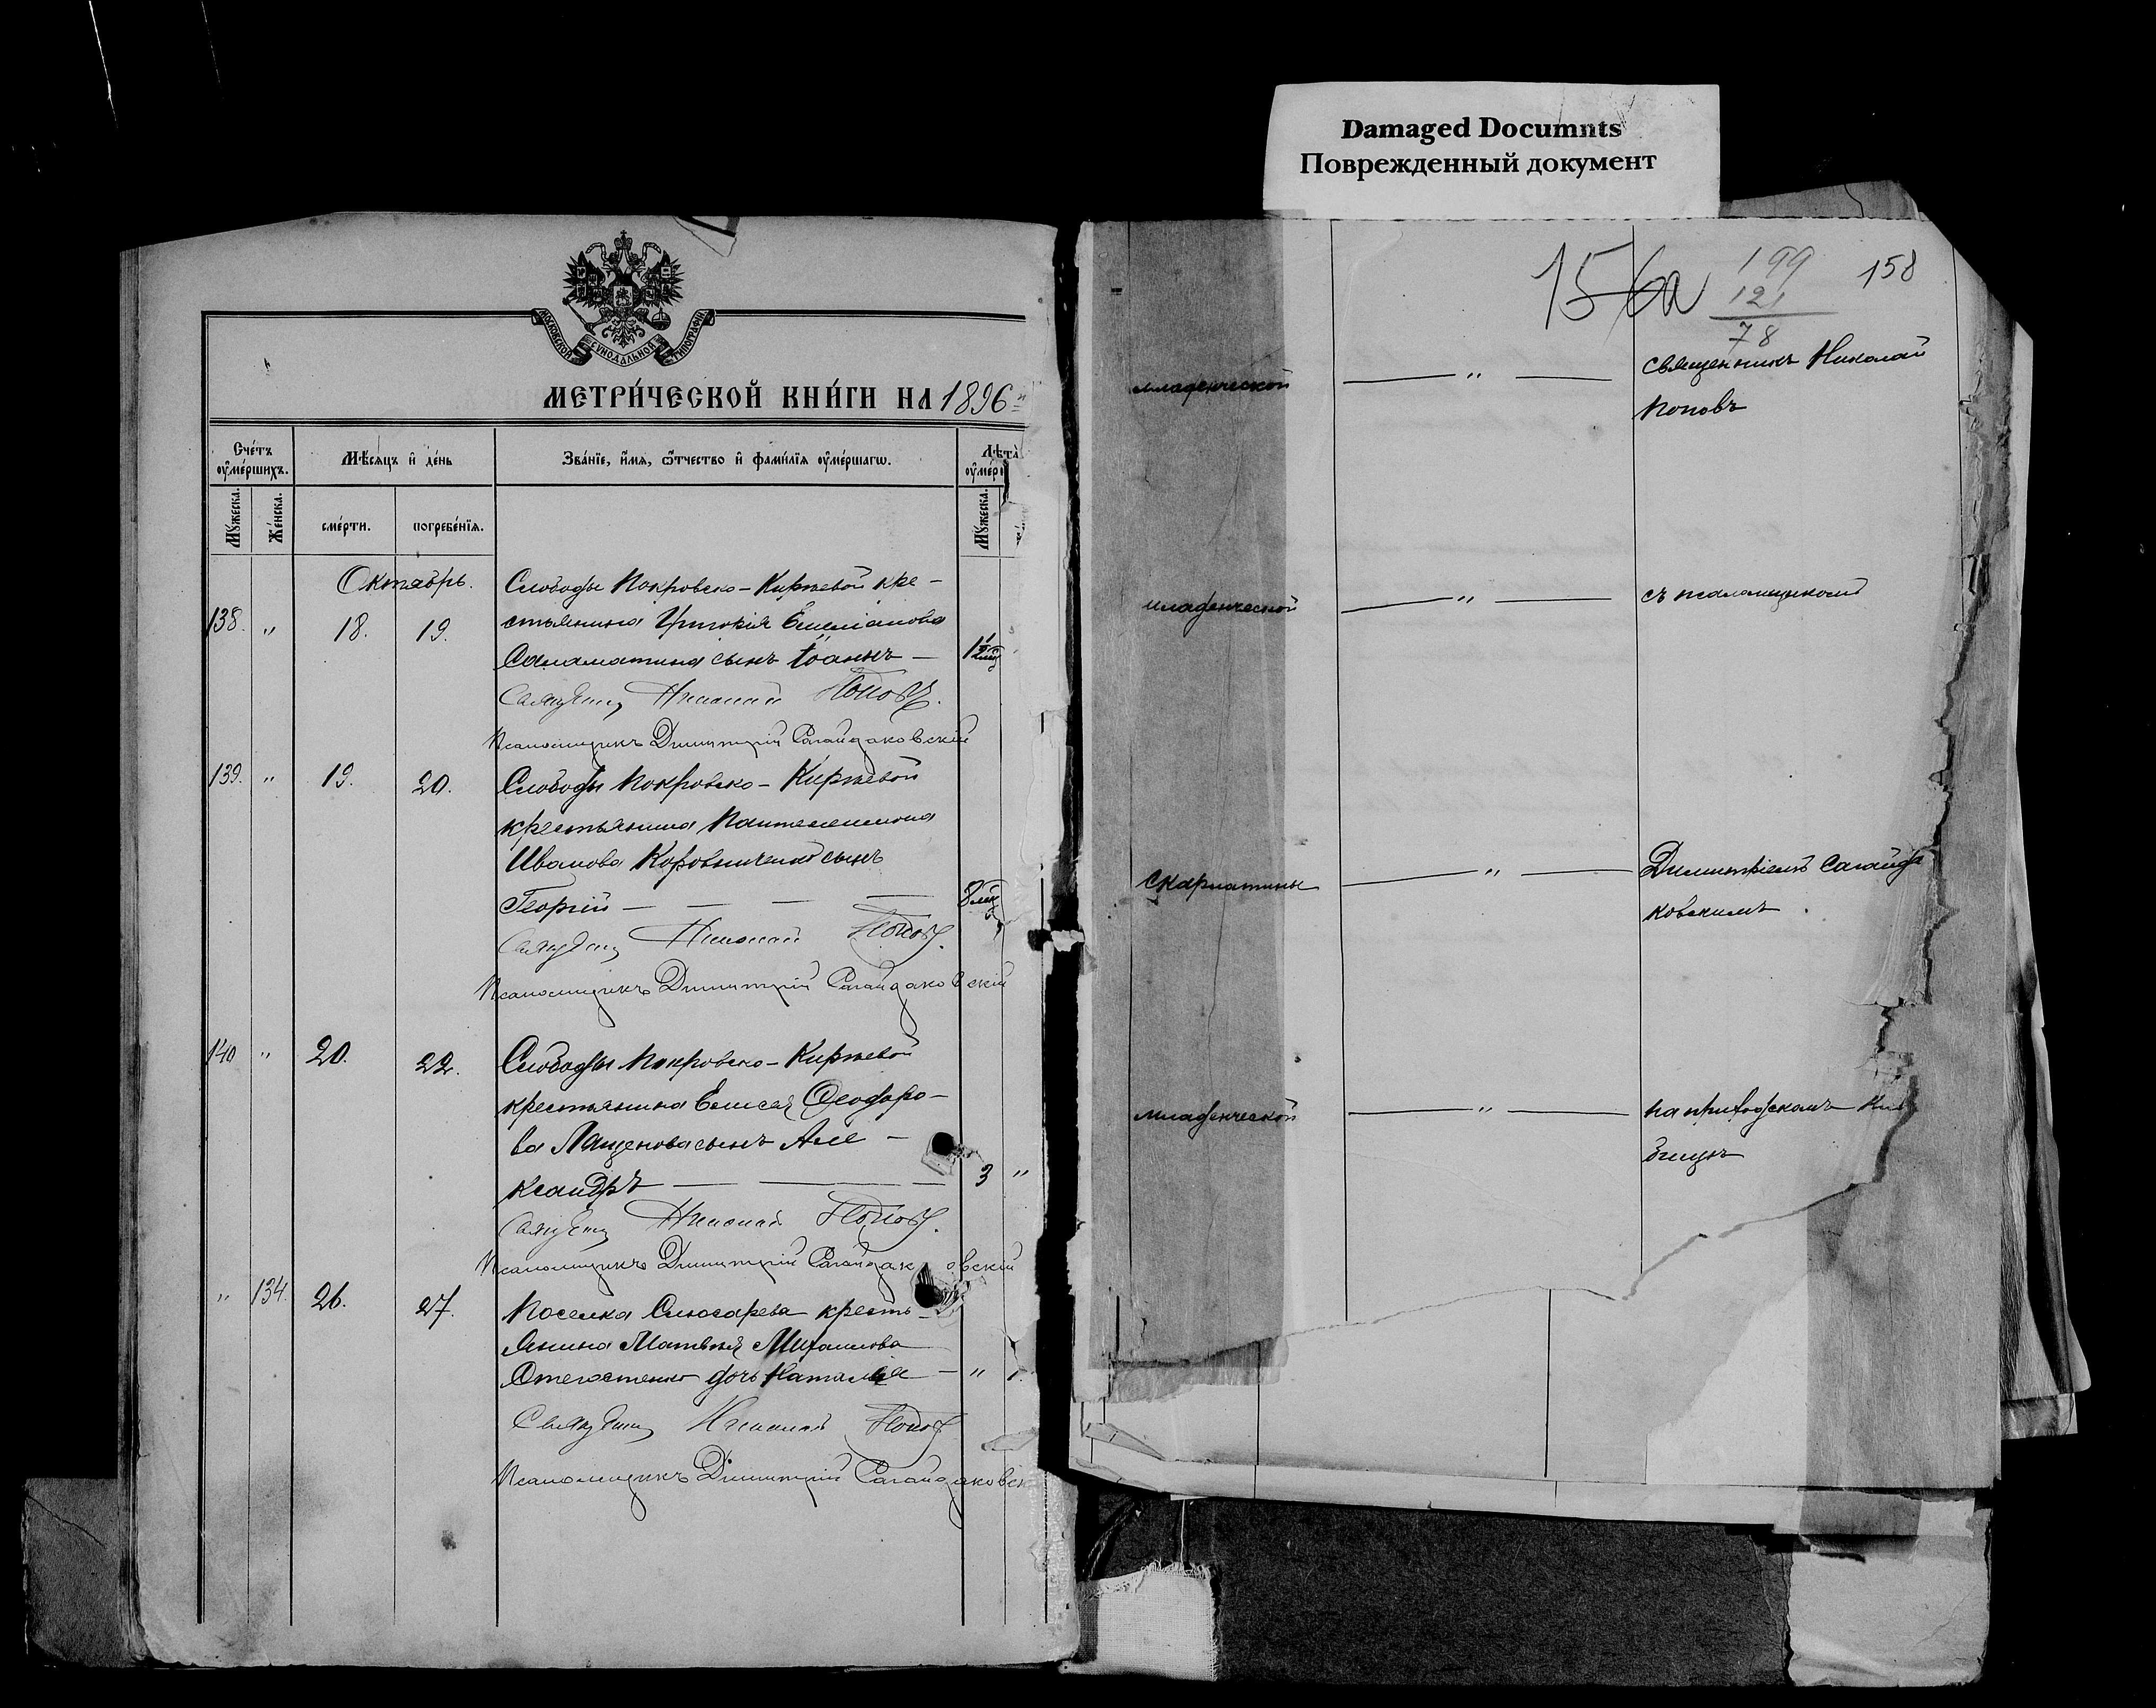 Damaged Documnts
Поврежденный документ
МОСКОВСКОЙ СѴНОДАЛЬНОЙ ТИПОГРАФІИ
МЕТРИ́ЧЕСКОЙ КНИ́ГИ НА 1896
Сче́тъ ᲂу҆ме́ршихъ.
Мѣ́сяцъ и҆ де́нь
Зва́нїе, и҆́мѧ, ѻ҆́тчество и҆ фами́лїѧ ᲂу҆ме́ршагѡ.
Лѣта̀ ᲂу҆ме́р
Мꙋ́жеска.
Же́нска.
сме́рти.
погребе́нїѧ.
Мꙋ́жеска.
Октябрь.
Слободы Покровско-Киреевой кре-
138. " 18. 19. стьянина Григорія Емеліанова
Саламатина сынъ Іоаннъ —
Священ Николай Поповъ.
Псаломщикъ Димитрій Сагайдаковскій
139. " 19. 20. Слободы Покровско-Киреевой
крестьянина Пантелеимона
Иванова сынъ
Георгій — — — —
Священ Николай Поповъ.
Псаломщикъ Димитрій Сагайдаковскій
140 " 20. 22. Слободы Покровско-Киреевой
крестьянина Елисея Ѳеодоро-
ва Лященова сынъ Але-
ксандръ — — — 3 "
Священ Николай Поповъ.
Псаломщикъ Димитрій Сагайдаковскій
" 134. 26. 27. Поселка Слюсарева кресть-
янина Матвея Михаилова
дочь Наталія — "
Священ Николай Поповъ
Псаломщикъ Димитрій Сагайдаковск
156а 199 158
121
78
младенческой — " — священникъ Николай
Поповъ
младенческой — " — съ псаломщикомъ
скарлатины — " — Димитріемъ Сагайда
ковскимъ.
младенческой — " — на приходскомъ кла
бищѣ